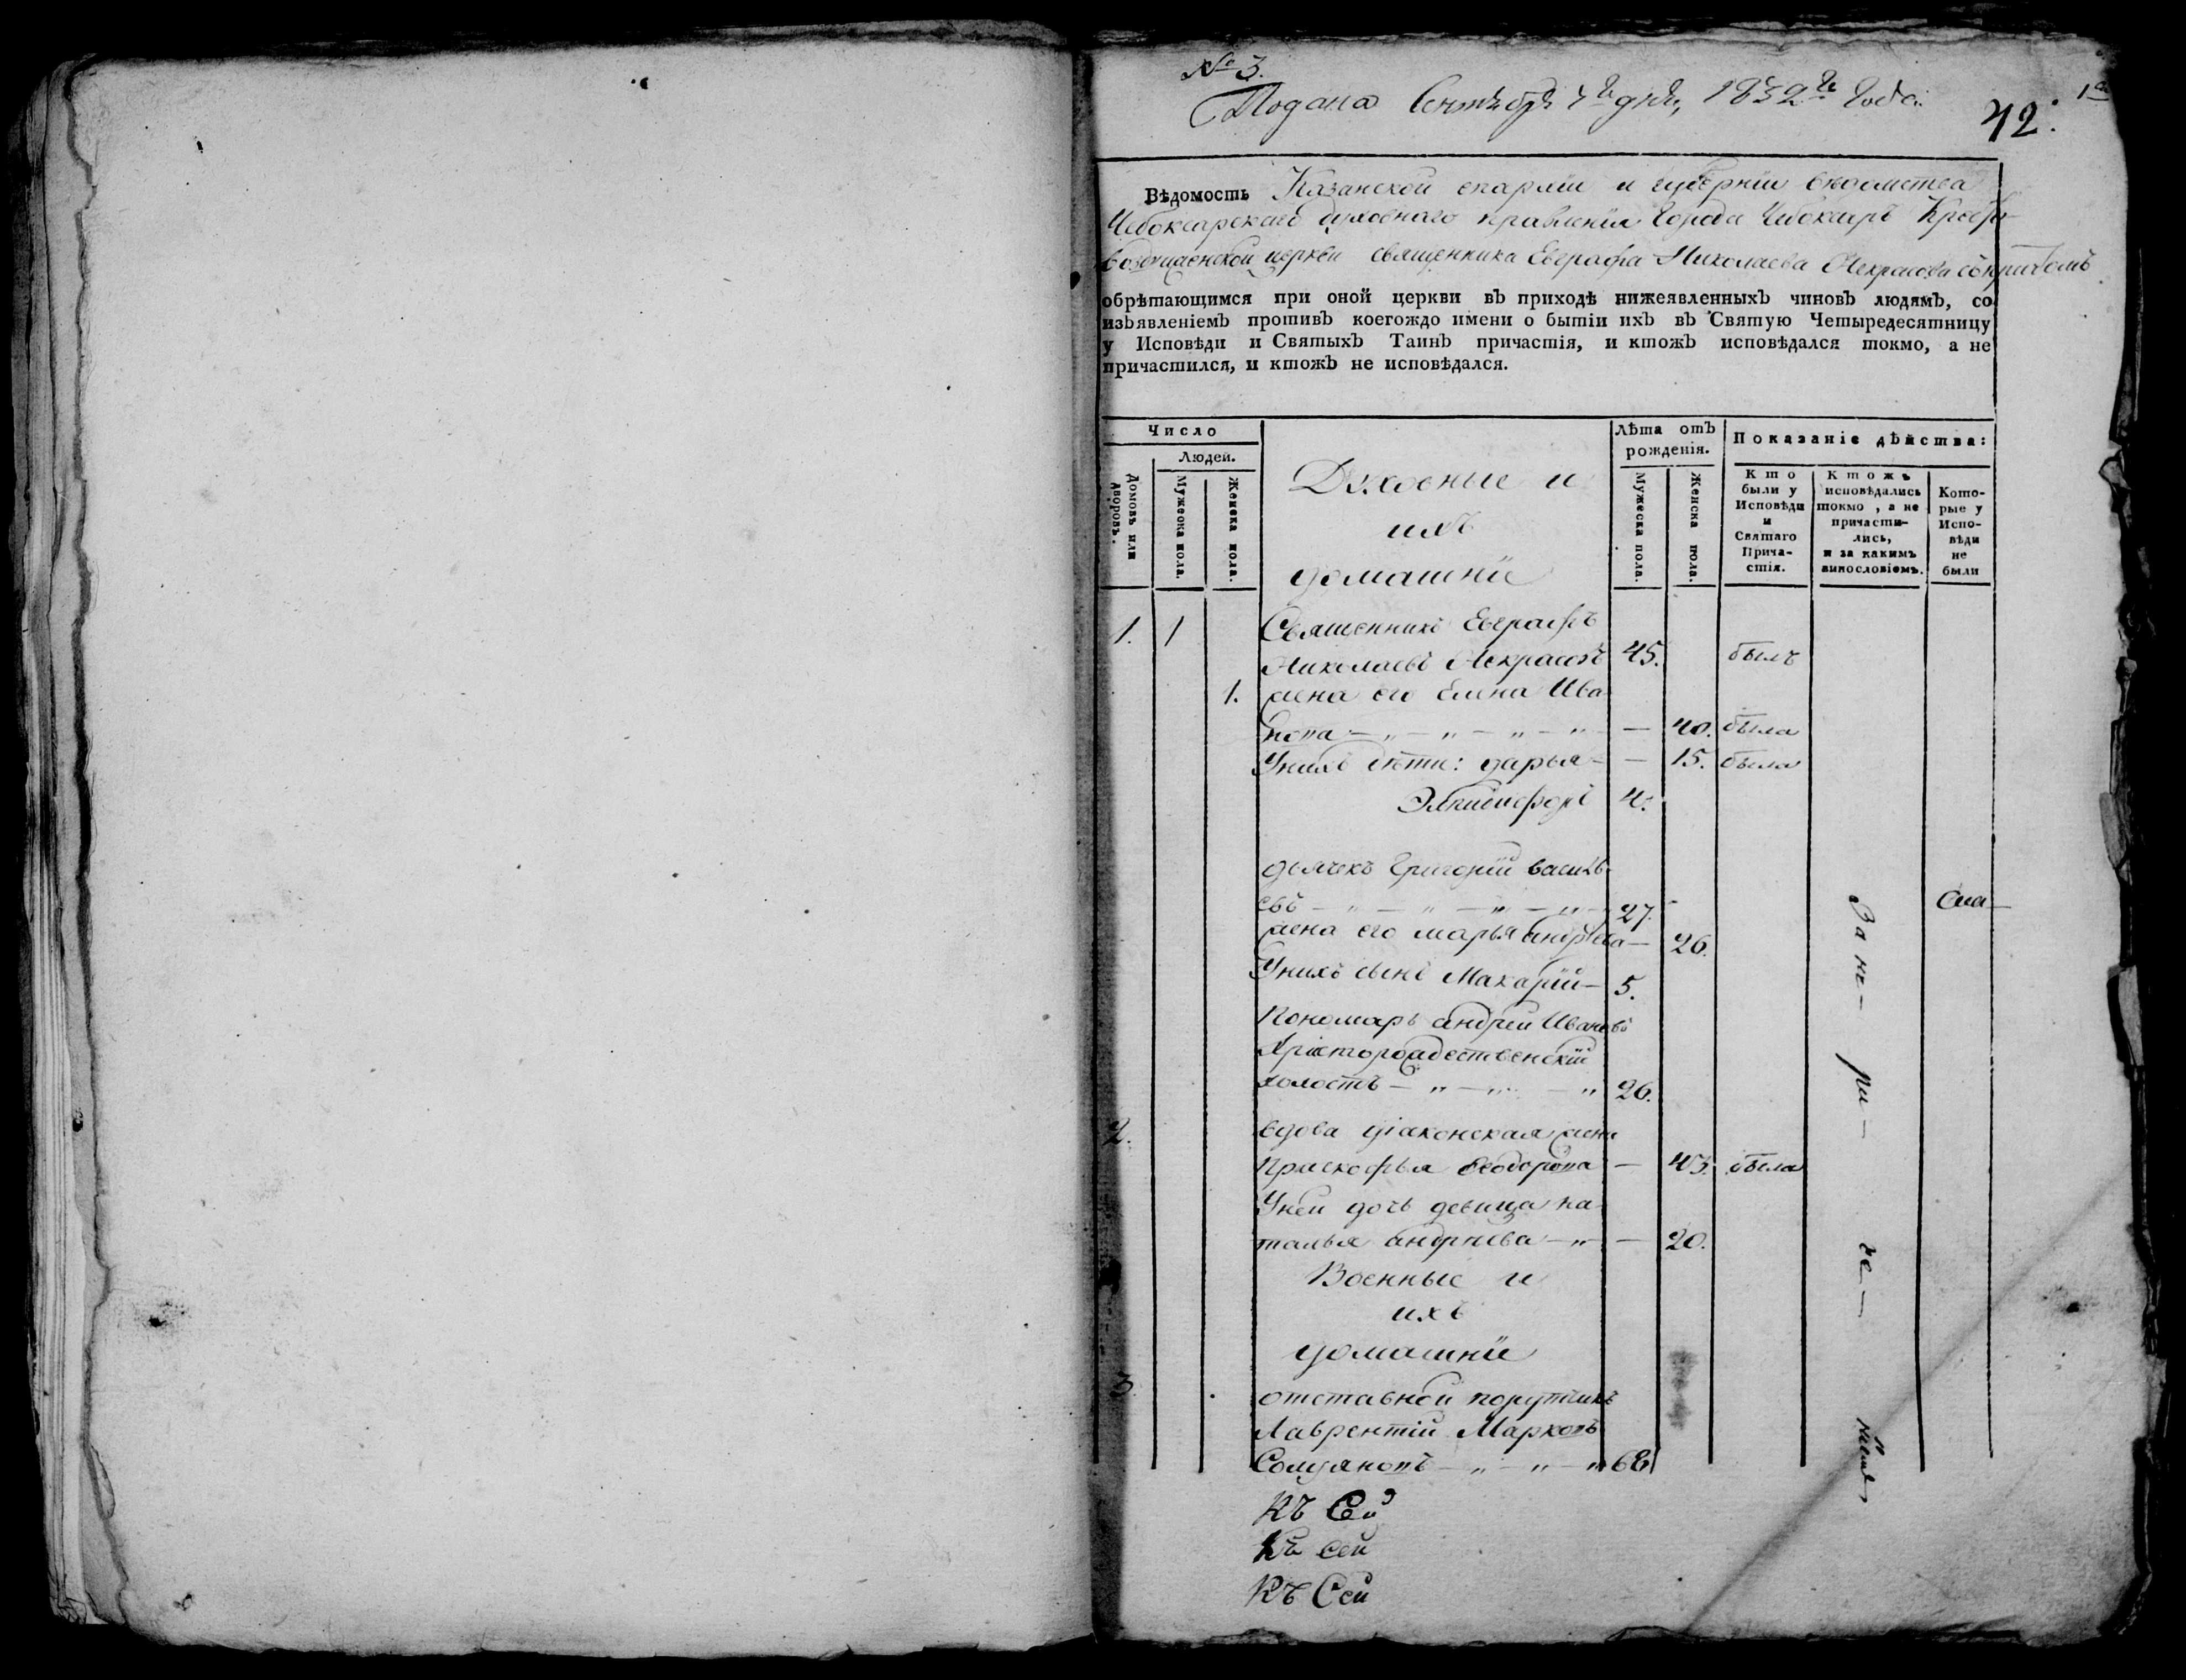 № 3.
Подана Сентября 4го дня, 1832го Года
42.
Вѣдомость Казанской епархіи и губерніи вѣдомства
Чебоксарскаго духовнаго правленія Города Чебоксаръ Кресто-
воздвиженской церкви священника Евграфа Николаева Некрасова съ причтомъ
обрѣтающимся при оной церкви въ приходѣ нижеявленныхъ чиновъ людямъ, со
изъявленіемъ противъ коегождо имени о бытіи ихъ въ Святую Четыредесятницу
у Исповѣди и Святыхъ Таинъ причастія, и ктожъ исповѣдался токмо, а не
причастился, и ктожъ не исповѣдался.
Число
Людей.
Домовъ или дворовъ.
Мужеска пола.
Женска пола.
Лѣта отъ
рожденія.
Мужеска пола.
Женска пола.
Показаніе дѣйства:
Кто
были у
Исповѣди
и
Святаго
Прича-
стія.
Ктожъ
исповѣдались
токмо, а не
причасти-
лись,
и за какимъ
винословіемъ.
Кото-
рые у
Испо-
вѣди
не
были
Духовные и
ихъ
домашніе
1. 1 Священникъ Евграфъ
Николаевъ Некрасовъ 45. былъ
1. жена его Елена Ива
нова — „ — „ — „ — „ — 40. была
У нихъ дѣти: дарья — — 15. была
4.
дьячекъ Григорій василь
евъ — „ — „ — „ — „ 27.
жена его марья андрѣева — 26.
У нихъ сынъ Макарій — 5.
Пономарь андрей Ивановъ
Христорождественскій
холостъ — „ — „ — „ 26.
2. вдова діаконская жена
Прасковья Ѳеодорова — 43. была
У ней дочь девица на
талья андрѣева — „ — 20.
Военные и
ихъ
домашніе
3 отставной порутчикъ
Лаврентій Марковъ
— „ — „ — „ 68
За не-
ри-
че-
Къ Сей
Къ сей
Къ Сей